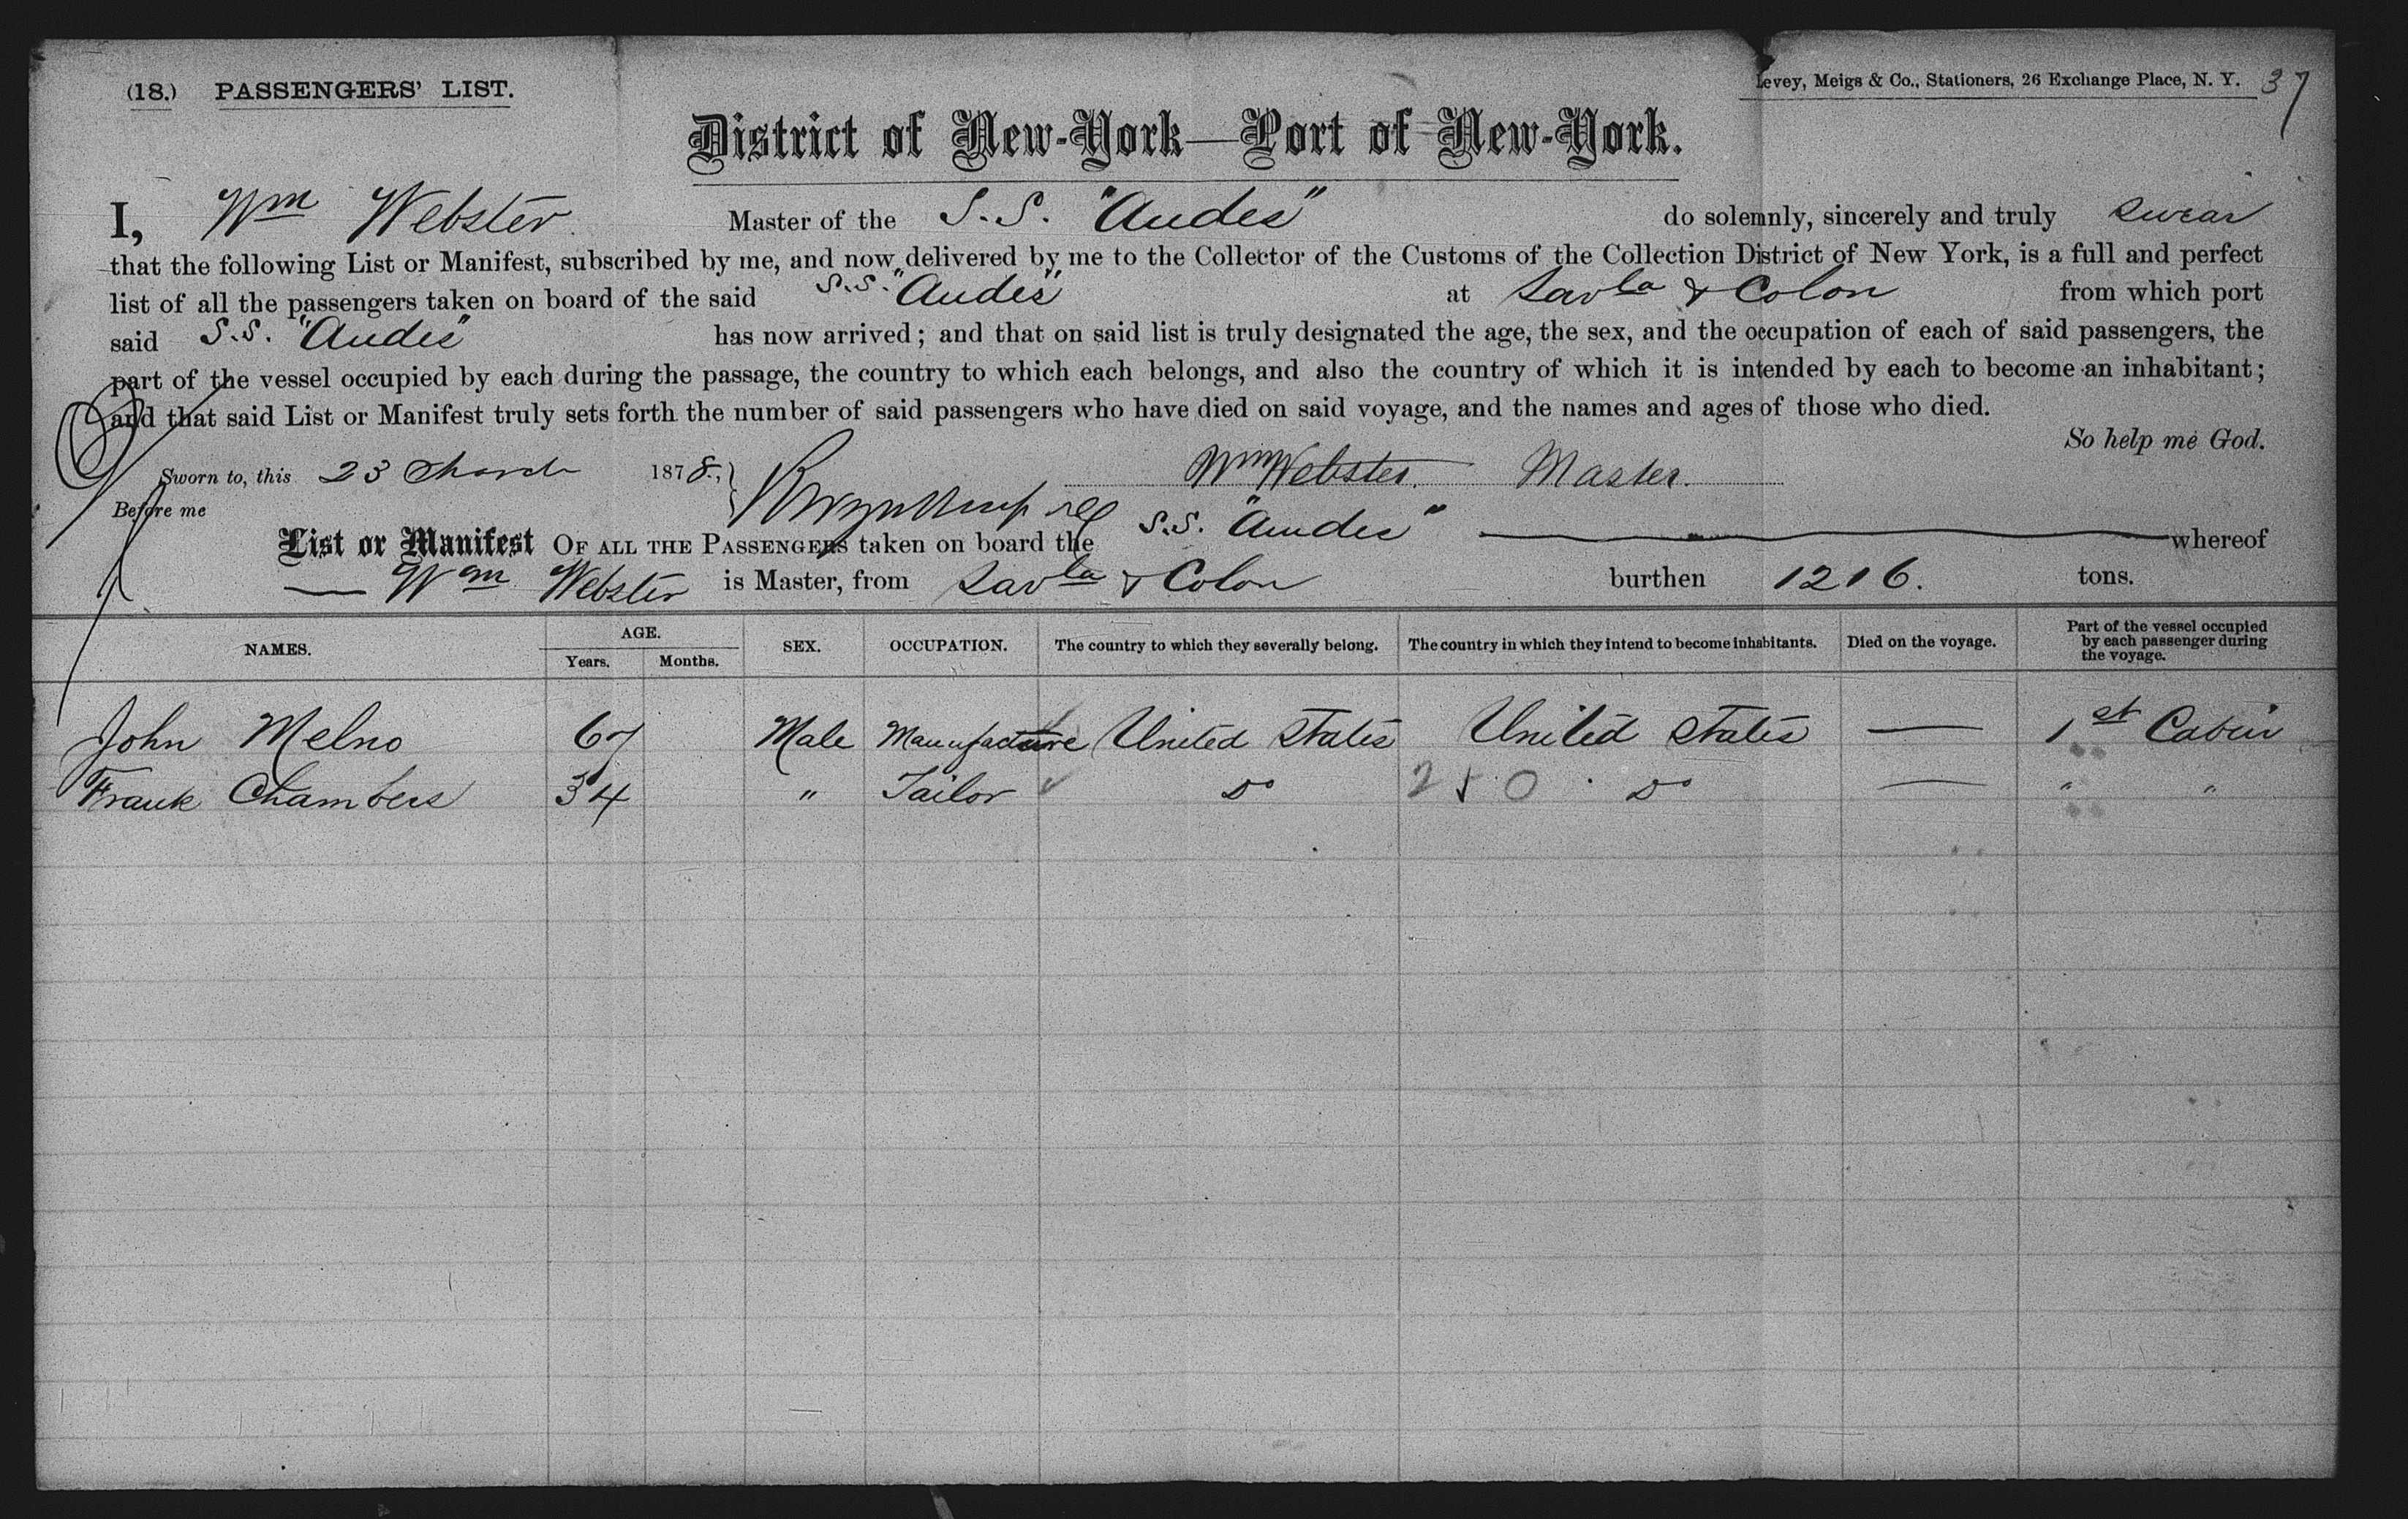 (18.) PASSENGERS' LIST.
Levey, Meigs & Co., Stationers, 26 Exchange Place, N. Y. 37
District of New-York—Port of New-York.
I, Wm Webster Master of the S.S. "Andes" do solemnly, sincerely and truly swear
that the following List or Manifest, subscribed by me, and now delivered by me to the Collector of the Customs of the Collection District of New York, is a full and perfect
list of all the passengers taken on board of the said S.S. "Andes" at Savla & Colon from which port
said S.S. "Andes" has now arrived; and that on said list is truly designated the age, the sex, and the occupation of each of said passengers, the
part of the vessel occupied by each during the passage, the country to which each belongs, and also the country of which it is intended by each to become an inhabitant;
and that said List or Manifest truly sets forth the number of said passengers who have died on said voyage, and the names and ages of those who died.
So help me God.
Sworn to, this 23 March 1878, Wm Webster. Master.
Before me
List or Manifest OF ALL THE PASSENGERS taken on board the S.S. "Andes" whereof
Wm Webster is Master, from Savla & Colon burthen 1216. tons.
NAMES. AGE. Years. Months. SEX. OCCUPATION. The country to which they severally belong. The country in which they intend to become inhabitants. Died on the voyage. Part of the vessel occupied by each passenger during the voyage.
John Melno 67 Male Manufacture United States United States — 1st Cabin
Frank Chambers 34 " Tailor Do 250 Do — " "